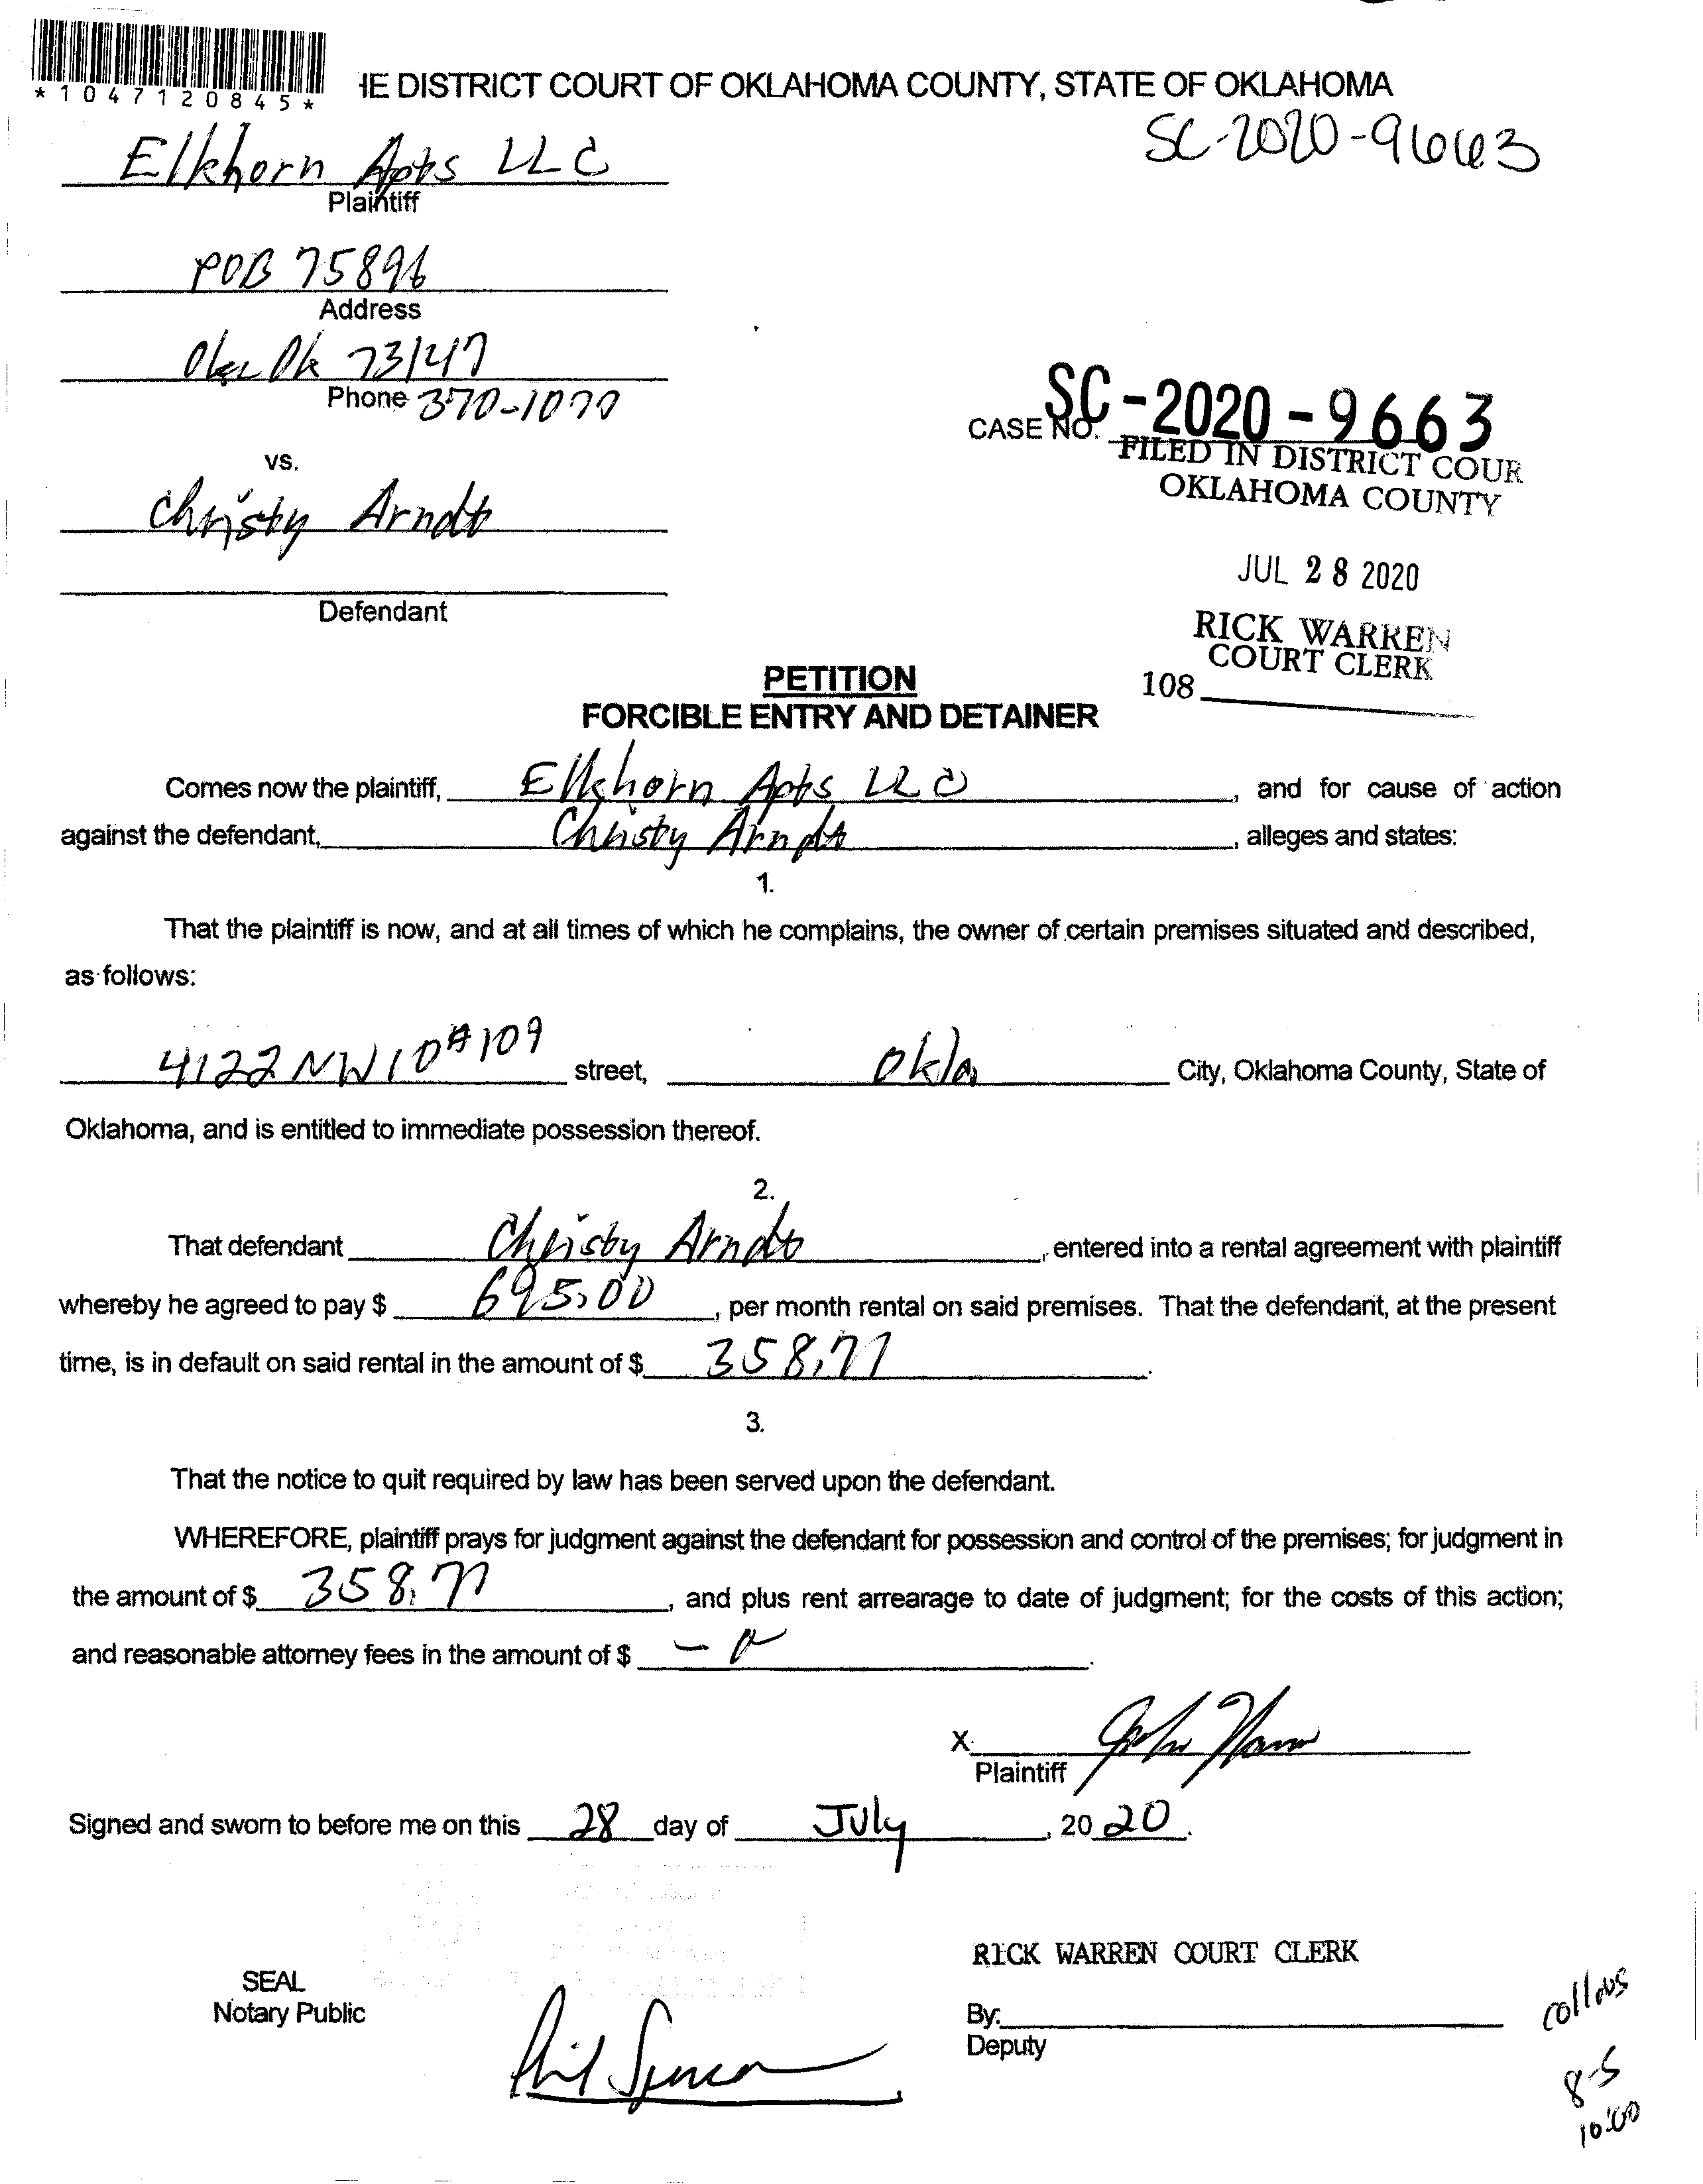 *1047120845*
IE DISTRICT COURT OF OKLAHOMA COUNTY, STATE OF OKLAHOMA
SC-2020-9663
Elkhorn Apts LLC
Plaintiff
POB 75896
Address
Ok 73147
Phone 370-1077
SC-2020-9663
CASE NO.
FILED IN DISTRICT COUR
OKLAHOMA COUNTY
vs.
Christy Arndt
JUL 28 2020
Defendant
RICK WARREN
COURT CLERK
108
PETITION
FORCIBLE ENTRY AND DETAINER
Comes now the plaintiff, Elkhorn Apts LLC, and for cause of action
against the defendant, Christy Arndt, alleges and states:
1.
That the plaintiff is now, and at all times of which he complains, the owner of certain premises situated and described,
as follows:
4122 NW 10 #109 street, Okla City, Oklahoma County, State of
Oklahoma, and is entitled to immediate possession thereof.
2.
That defendant Christy Arndt, entered into a rental agreement with plaintiff
whereby he agreed to pay $ 695.00, per month rental on said premises. That the defendant, at the present
time, is in default on said rental in the amount of $ 358.77.
3.
That the notice to quit required by law has been served upon the defendant.
WHEREFORE, plaintiff prays for judgment against the defendant for possession and control of the premises; for judgment in
the amount of $ 358.77, and plus rent arrearage to date of judgment; for the costs of this action;
and reasonable attorney fees in the amount of $ -0.
X
Plaintiff
Signed and sworn to before me on this 28 day of July, 2020.
RICK WARREN COURT CLERK
SEAL
Notary Public
By:
Deputy
Phil Spencer
8-5
10:00